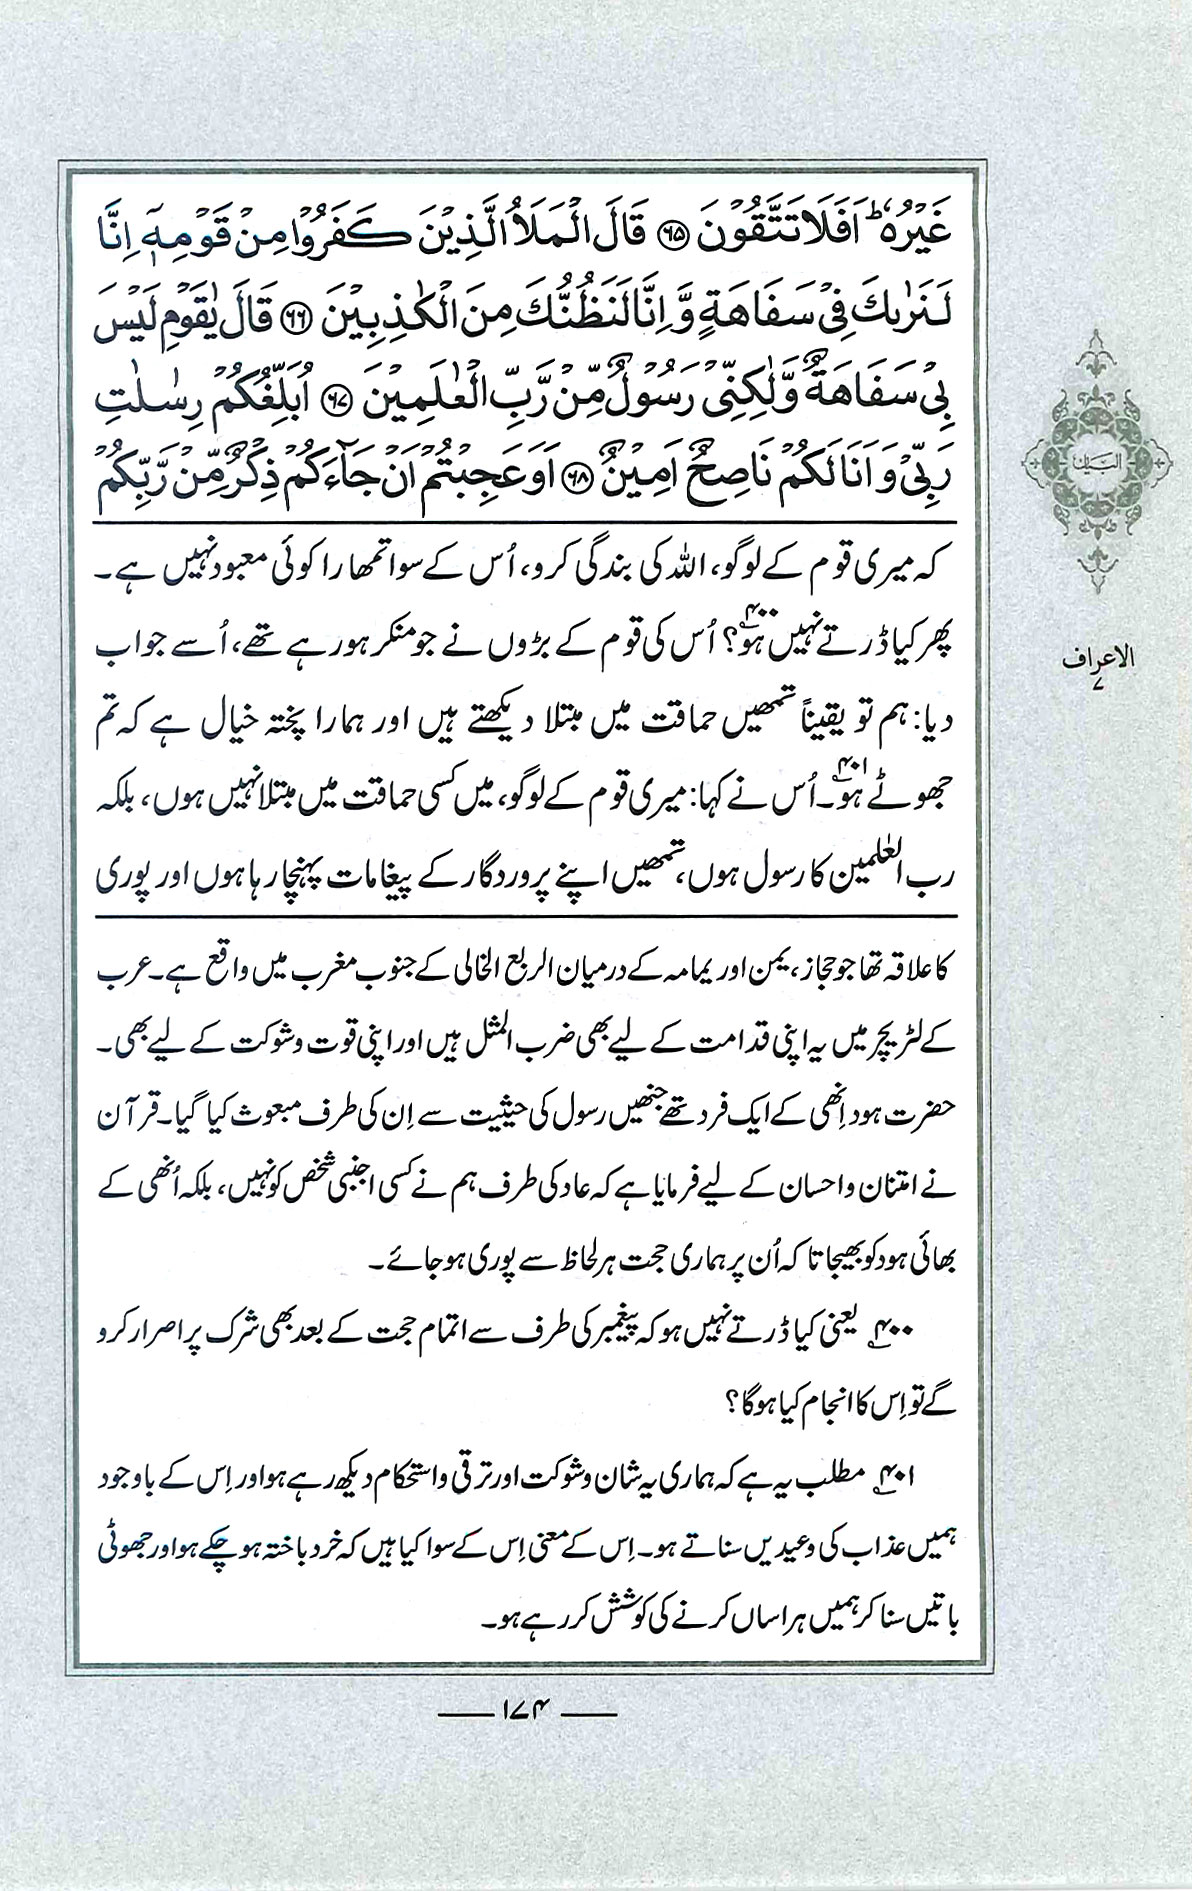 غَيْرُهٗ ؕ اَفَلَا تَتَّقُوْنَ ﴿۶۵﴾ قَالَ الْمَلَاُ الَّذِيْنَ كَفَرُوْا مِنْ قَوْمِهٖۤ اِنَّا
لَنَرٰىكَ فِيْ سَفَاهَةٍ وَّاِنَّا لَنَظُنُّكَ مِنَ الْكٰذِبِيْنَ ﴿۶۶﴾ قَالَ يٰقَوْمِ لَيْسَ
بِيْ سَفَاهَةٌ وَّلٰكِنِّيْ رَسُوْلٌ مِّنْ رَّبِّ الْعٰلَمِيْنَ ﴿۶۷﴾ اُبَلِّغُكُمْ رِسٰلٰتِ
رَبِّيْ وَاَنَا لَكُمْ نَاصِحٌ اَمِيْنٌ ﴿۶۸﴾ اَوَعَجِبْتُمْ اَنْ جَآءَكُمْ ذِكْرٌ مِّنْ رَّبِّكُمْ
کہ میری قوم کے لوگو، اللہ کی بندگی کرو، اُس کے سوا تمھارا کوئی معبود نہیں ہے۔
پھر کیا ڈرتے نہیں ہو؟۴۰۰ اُس کی قوم کے بڑوں نے جو منکر ہو رہے تھے، اُسے جواب
دیا: ہم تو یقیناً تمھیں حماقت میں مبتلا دیکھتے ہیں اور ہمارا پختہ خیال ہے کہ تم
جھوٹے ہو۔۴۰۱ اُس نے کہا: میری قوم کے لوگو، میں کسی حماقت میں مبتلا نہیں ہوں، بلکہ
رب العٰلمین کا رسول ہوں، تمھیں اپنے پروردگار کے پیغامات پہنچا رہا ہوں اور پوری
کا علاقہ تھا جو حجاز، یمن اور یمامہ کے درمیان الربع الخالی کے جنوب مغرب میں واقع ہے۔ عرب
کے لٹریچر میں یہ اپنی قدامت کے لیے بھی ضرب المثل ہیں اور اپنی قوت و شوکت کے لیے بھی۔
حضرت ہود اِنھی کے ایک فرد تھے جنھیں رسول کی حیثیت سے اِن کی طرف مبعوث کیا گیا۔ قرآن
نے امتنان و احسان کے لیے فرمایا ہے کہ عاد کی طرف ہم نے کسی اجنبی شخص کو نہیں، بلکہ اُنھی کے
بھائی ہود کو بھیجا تا کہ اُن پر ہماری حجت ہر لحاظ سے پوری ہو جائے۔
۴۰۰ یعنی کیا ڈرتے نہیں ہو کہ پیغمبر کی طرف سے اتمام حجت کے بعد بھی شرک پر اصرار کرو
گے تو اِس کا انجام کیا ہو گا؟
۴۰۱ مطلب یہ ہے کہ ہماری یہ شان و شوکت اور ترقی و استحکام دیکھ رہے ہو اور اِس کے باوجود
ہمیں عذاب کی وعیدیں سناتے ہو۔ اِس کے معنی اِس کے سوا کیا ہیں کہ خرد باختہ ہو چکے ہو اور جھوٹی
باتیں سنا کر ہمیں ہراساں کرنے کی کوشش کر رہے ہو۔
البیان
الاعراف
۷
۱۷۴